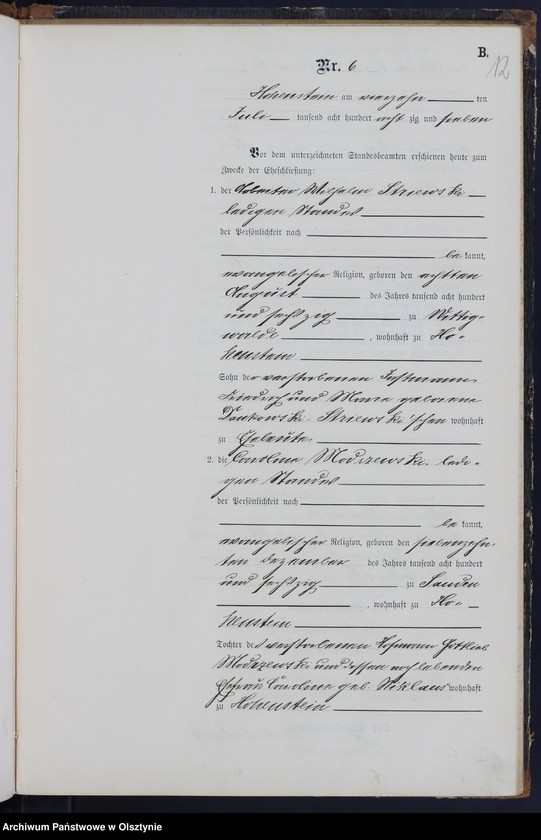 B.
12
Nr. 6
Hohenstein am vierzehn ten
Juli tausend acht hundert acht zig und sieben
Vor dem unterzeichneten Standesbeamten erschienen heute zum
Zwecke der Eheschließung:
1. der Arbeiter Wilhelm Striewski
ledigen Standes
der Persönlichkeit nach
be kannt,
evangelischer Religion, geboren den achtten
August des Jahres tausend acht hundert
und sechszig zu Wittig-
walde, wohnhaft zu Ho-
henstein
Sohn der verstorbenen Instmann
Friedrich und Marie geborene
Dankowski- Striewski'schen wohnhaft
zu Eheleute
2. die Caroline Modrzewski, ledi-
gen Standes
der Persönlichkeit nach
be kannt,
evangelischer Religion, geboren den siebenzehn-
ten Dezember des Jahres tausend acht hundert
und sechszig zu Sanden
, wohnhaft zu Ho-
henstein
Tochter des verstorbenen Hofmann Gottlieb
Modrzewski und dessen noch lebenden
Ehefrau Caroline geb. Niklaus wohnhaft
zu Hohenstein
Archiwum Państwowe w Olsztynie